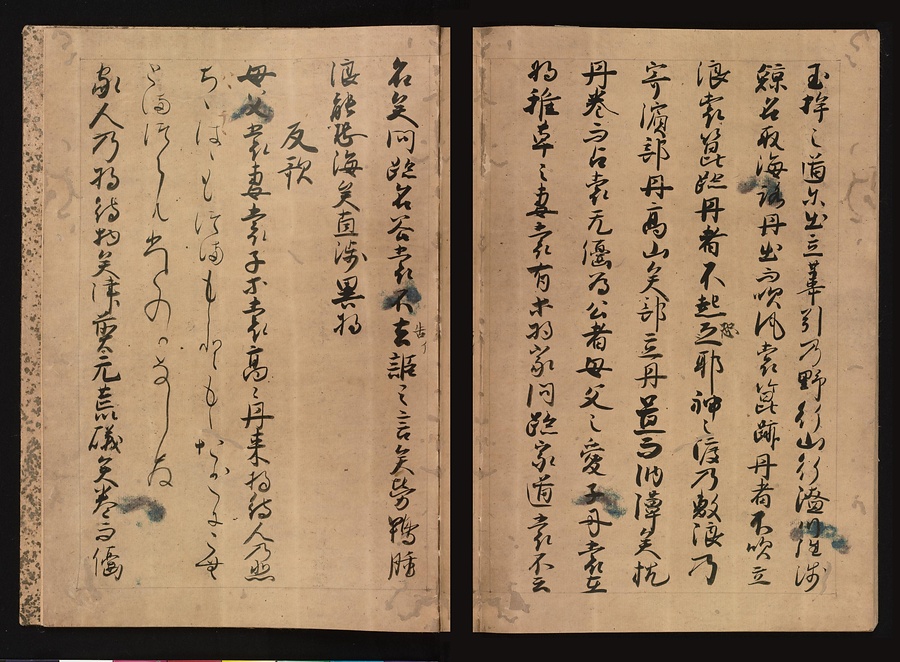 玉桙之道尓出立葦引乃野行山行潦川徃渉
鯨名取海路丹出而吹風裳箟跡丹者不吹立
浪裳箟跡丹者不起恐耶神之渡乃敷浪乃
寄濱部丹高山矣部立丹置而汭潭矣枕
丹巻而占裳无偃為公者母父之愛子丹裳在
将稚草之妻裳有等将家問跡家道裳不云
名矣問跡名谷裳不告誰之言矣勞鴨腫
浪能恐海矣直渉異将
反歌
母父裳妻裳子等裳高々丹来将待人乃悲
ちゝはゝもつまもこともも
とまつらん人のかなしさ
家人乃将待物矣津煎裳无荒礒矣巻而偃